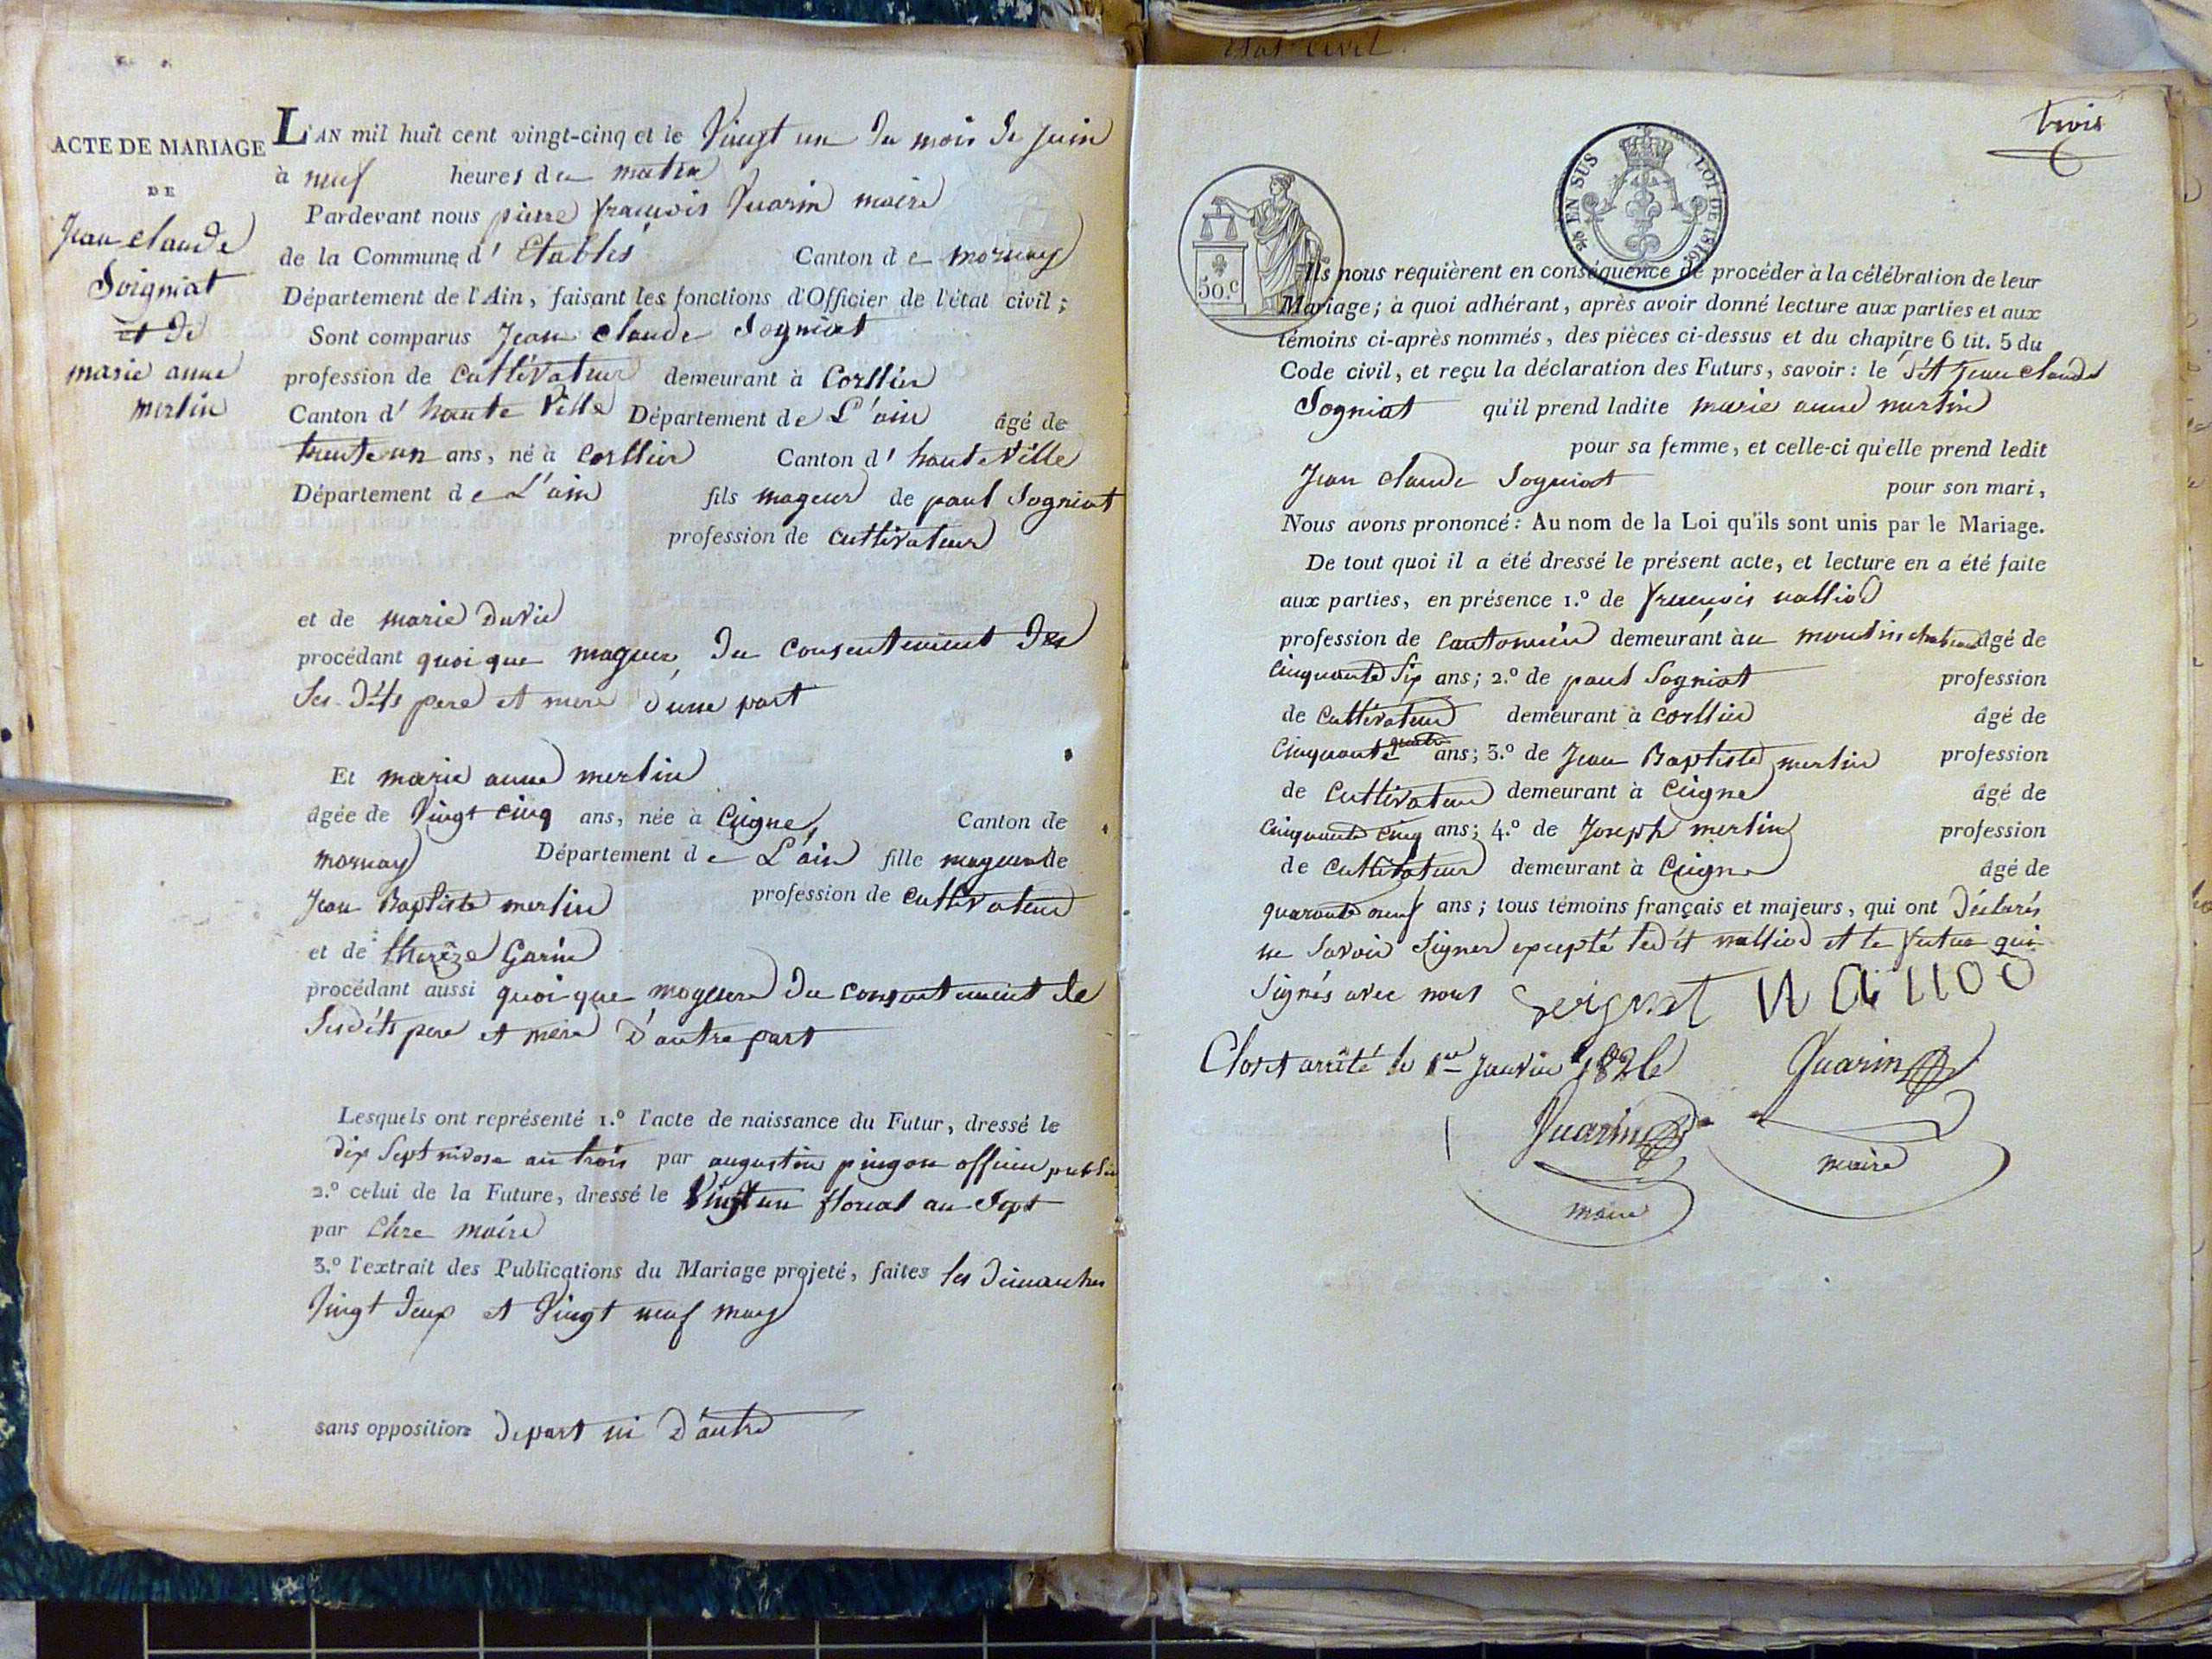 ACTE DE MARIAGE
DE
Jean claude
Soigniat
et de
marie anne
merlin
L'AN mil huit cent vingt-cinq et le Vingt un du mois de juin
à neuf heures du matin
Pardevant nous pierre françois Quarin maire
de la Commune d' Etables Canton de mornay
Département de l'Ain, faisant les fonctions d'Officier de l'état civil;
Sont comparus Jean claude Sogniat
profession de Cultivateur demeurant à Corllier
Canton d' haute Ville Département de L'ain âgé de
trente un ans, né à Corllier Canton d' haute Ville
Département de L'ain fils mageur de paul Sogniat
profession de cultivateur
et de marie Duvie
procédant quoi que mageur, du consentement des
Ses dts pere et mere d'une part
Et marie anne merlin
âgée de Vingt cinq ans, née à Ceigne, Canton de
mornay Département de L'ain fille mageur de
Jean Baptiste merlin profession de cultivateur
et de therèze Garin
procédant aussi quoi que mageure du consentement de
Sesdits pere et mere D'autre part
Lesquels ont représenté 1.º l'acte de naissance du Futur, dressé le
dix Sept nivose an trois par augustin pingon officier public
2.º celui de la Future, dressé le Vingt un floreal an Sept
par maire
3.º l'extrait des Publications du Mariage projeté, faites les dimanches
Vingt deux et Vingt neuf may
sans opposition de part ni D'autre
trois
EN SUS LOI DE 1816
50.c
Ils nous requièrent en conséquence de procéder à la célébration de leur
Mariage; à quoi adhérant, après avoir donné lecture aux parties et aux
témoins ci-après nommés, des pièces ci-dessus et du chapitre 6 tit. 5 du
Code civil, et reçu la déclaration des Futurs, savoir: le dit Jean claude
Sogniat qu'il prend ladite marie anne merlin
pour sa femme, et celle-ci qu'elle prend ledit
Jean claude Sogniat pour son mari,
Nous avons prononcé: Au nom de la Loi qu'ils sont unis par le Mariage.
De tout quoi il a été dressé le présent acte, et lecture en a été faite
aux parties, en présence 1.º de françois nalliod
profession de cantonnier demeurant àu âgé de
Cinquante Six ans; 2.º de paul Sogniat profession
de cultivateur demeurant à corllier âgé de
Cinquante quatre ans; 3.º de Jean Baptiste merlin profession
de Cultivateur demeurant à Ceigne âgé de
Cinquante Cinq ans; 4.º de Joseph merlin profession
de cultivateur demeurant à Ceigne âgé de
quarante neuf ans; tous témoins français et majeurs, qui ont déclarés
ne Savoir Signer excepté ledit nalliod et le futur qui
Signés avec nous
Clos et arrêté le 1er janvier 1826 Quarin
Quarin maire
maire